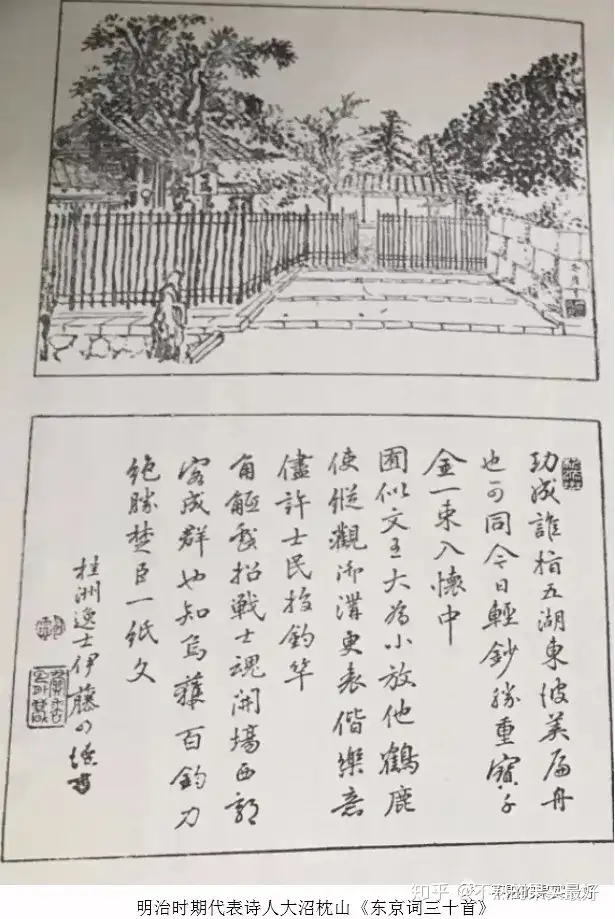 功成誰指五湖東彼美扁舟
也可同今日輕鈔勝重寶千
金一束入懷中
囿似文王大為小放他鶴鹿
使縱觀御溝更表偕樂意
儘許士民投釣竿
角觝戲招戰士魂開場西郭
客成群也知烏獲百鈞力
絶勝楚臣一紙文
桂洲逸士伊藤
知乎
果实最好
明治时期代表诗人大沼枕山《东京词三十首》